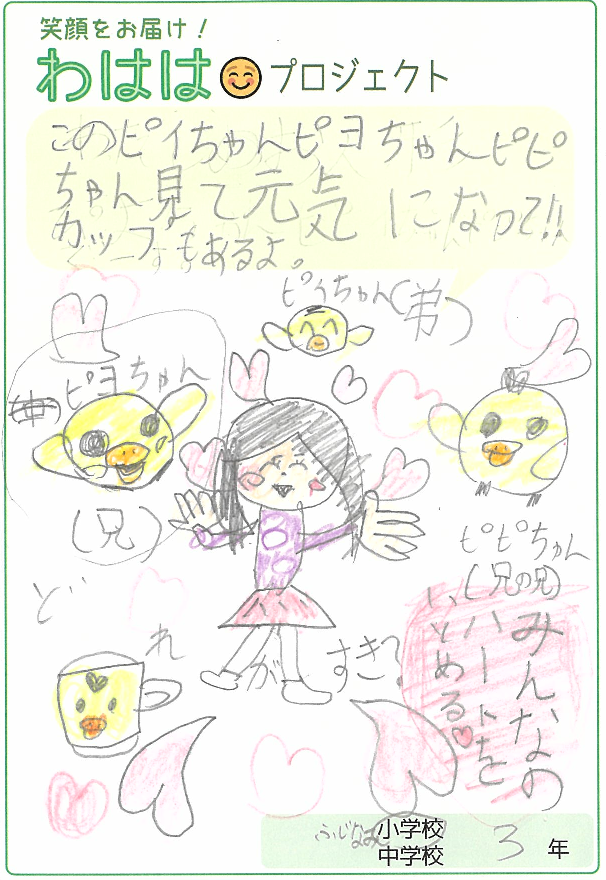 笑顔をお届け！
わはは プロジェクト
このピイちゃんピヨちゃんピピ
ちゃん見て元気になって!!
カップもあるよ。
ピイちゃん(弟)
ピヨちゃん
(兄)
ピピちゃん
(兄の兄)
どれがすき?
みんなの
ハートを
いとめる
小学校
中学校
3年